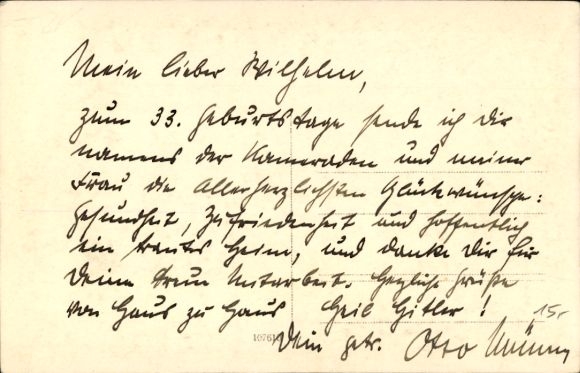 Mein lieber Wilhelm,
zum 33. Geburtstage sende ich Dir
namens der Kameraden und meiner
Frau die Allerherzlichsten Glückwünsche:
Gesundheit, Zufriedenheit und hoffentlich
ein trautes Heim, und danke Dir für
Deine treue Mitarbeit. Herzliche Grüße
von Haus zu Haus Heil Hitler!
15.-
107610
Dein getr. Otto